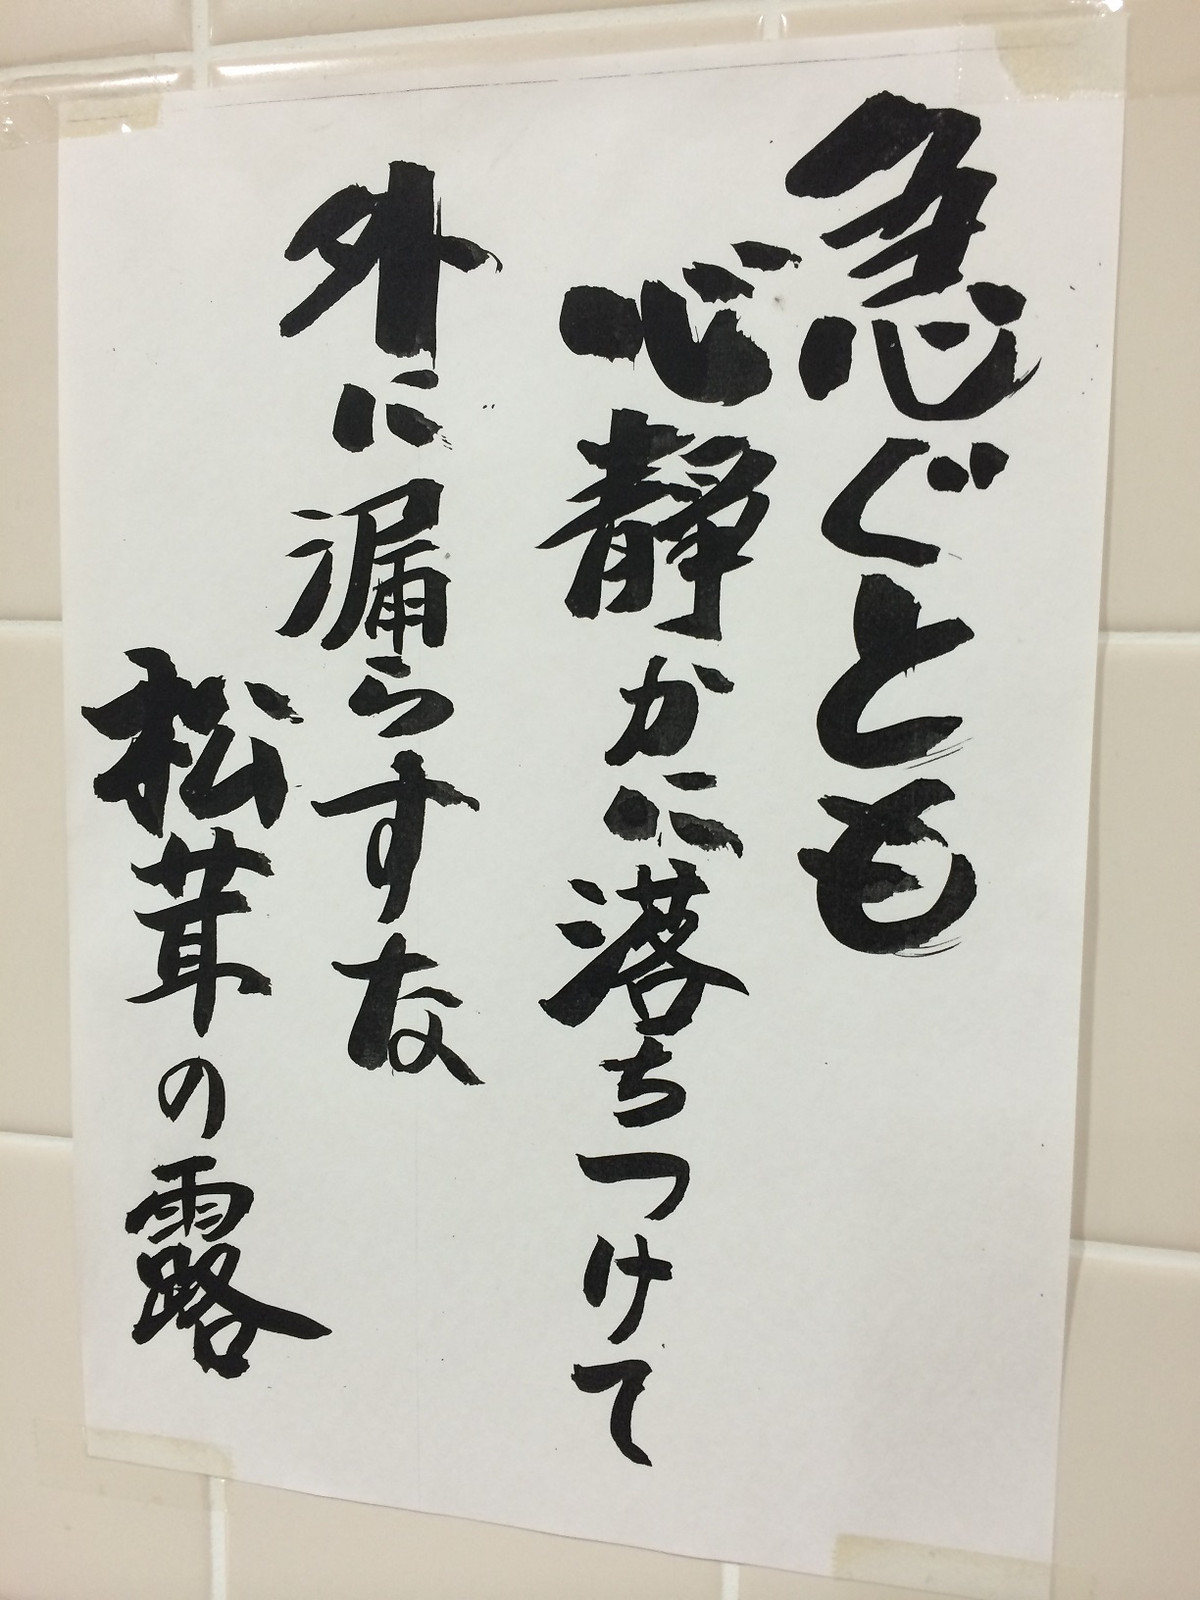 急ぐとも
心静かに落ちつけて
外に漏らすな
松茸の露